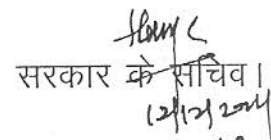 सरकार के सचिव।
12/12/2024